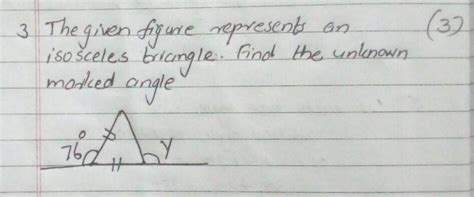 3 The given figure represents an (3)
isosceles triangle. Find the unknown
marked angle
76° Y